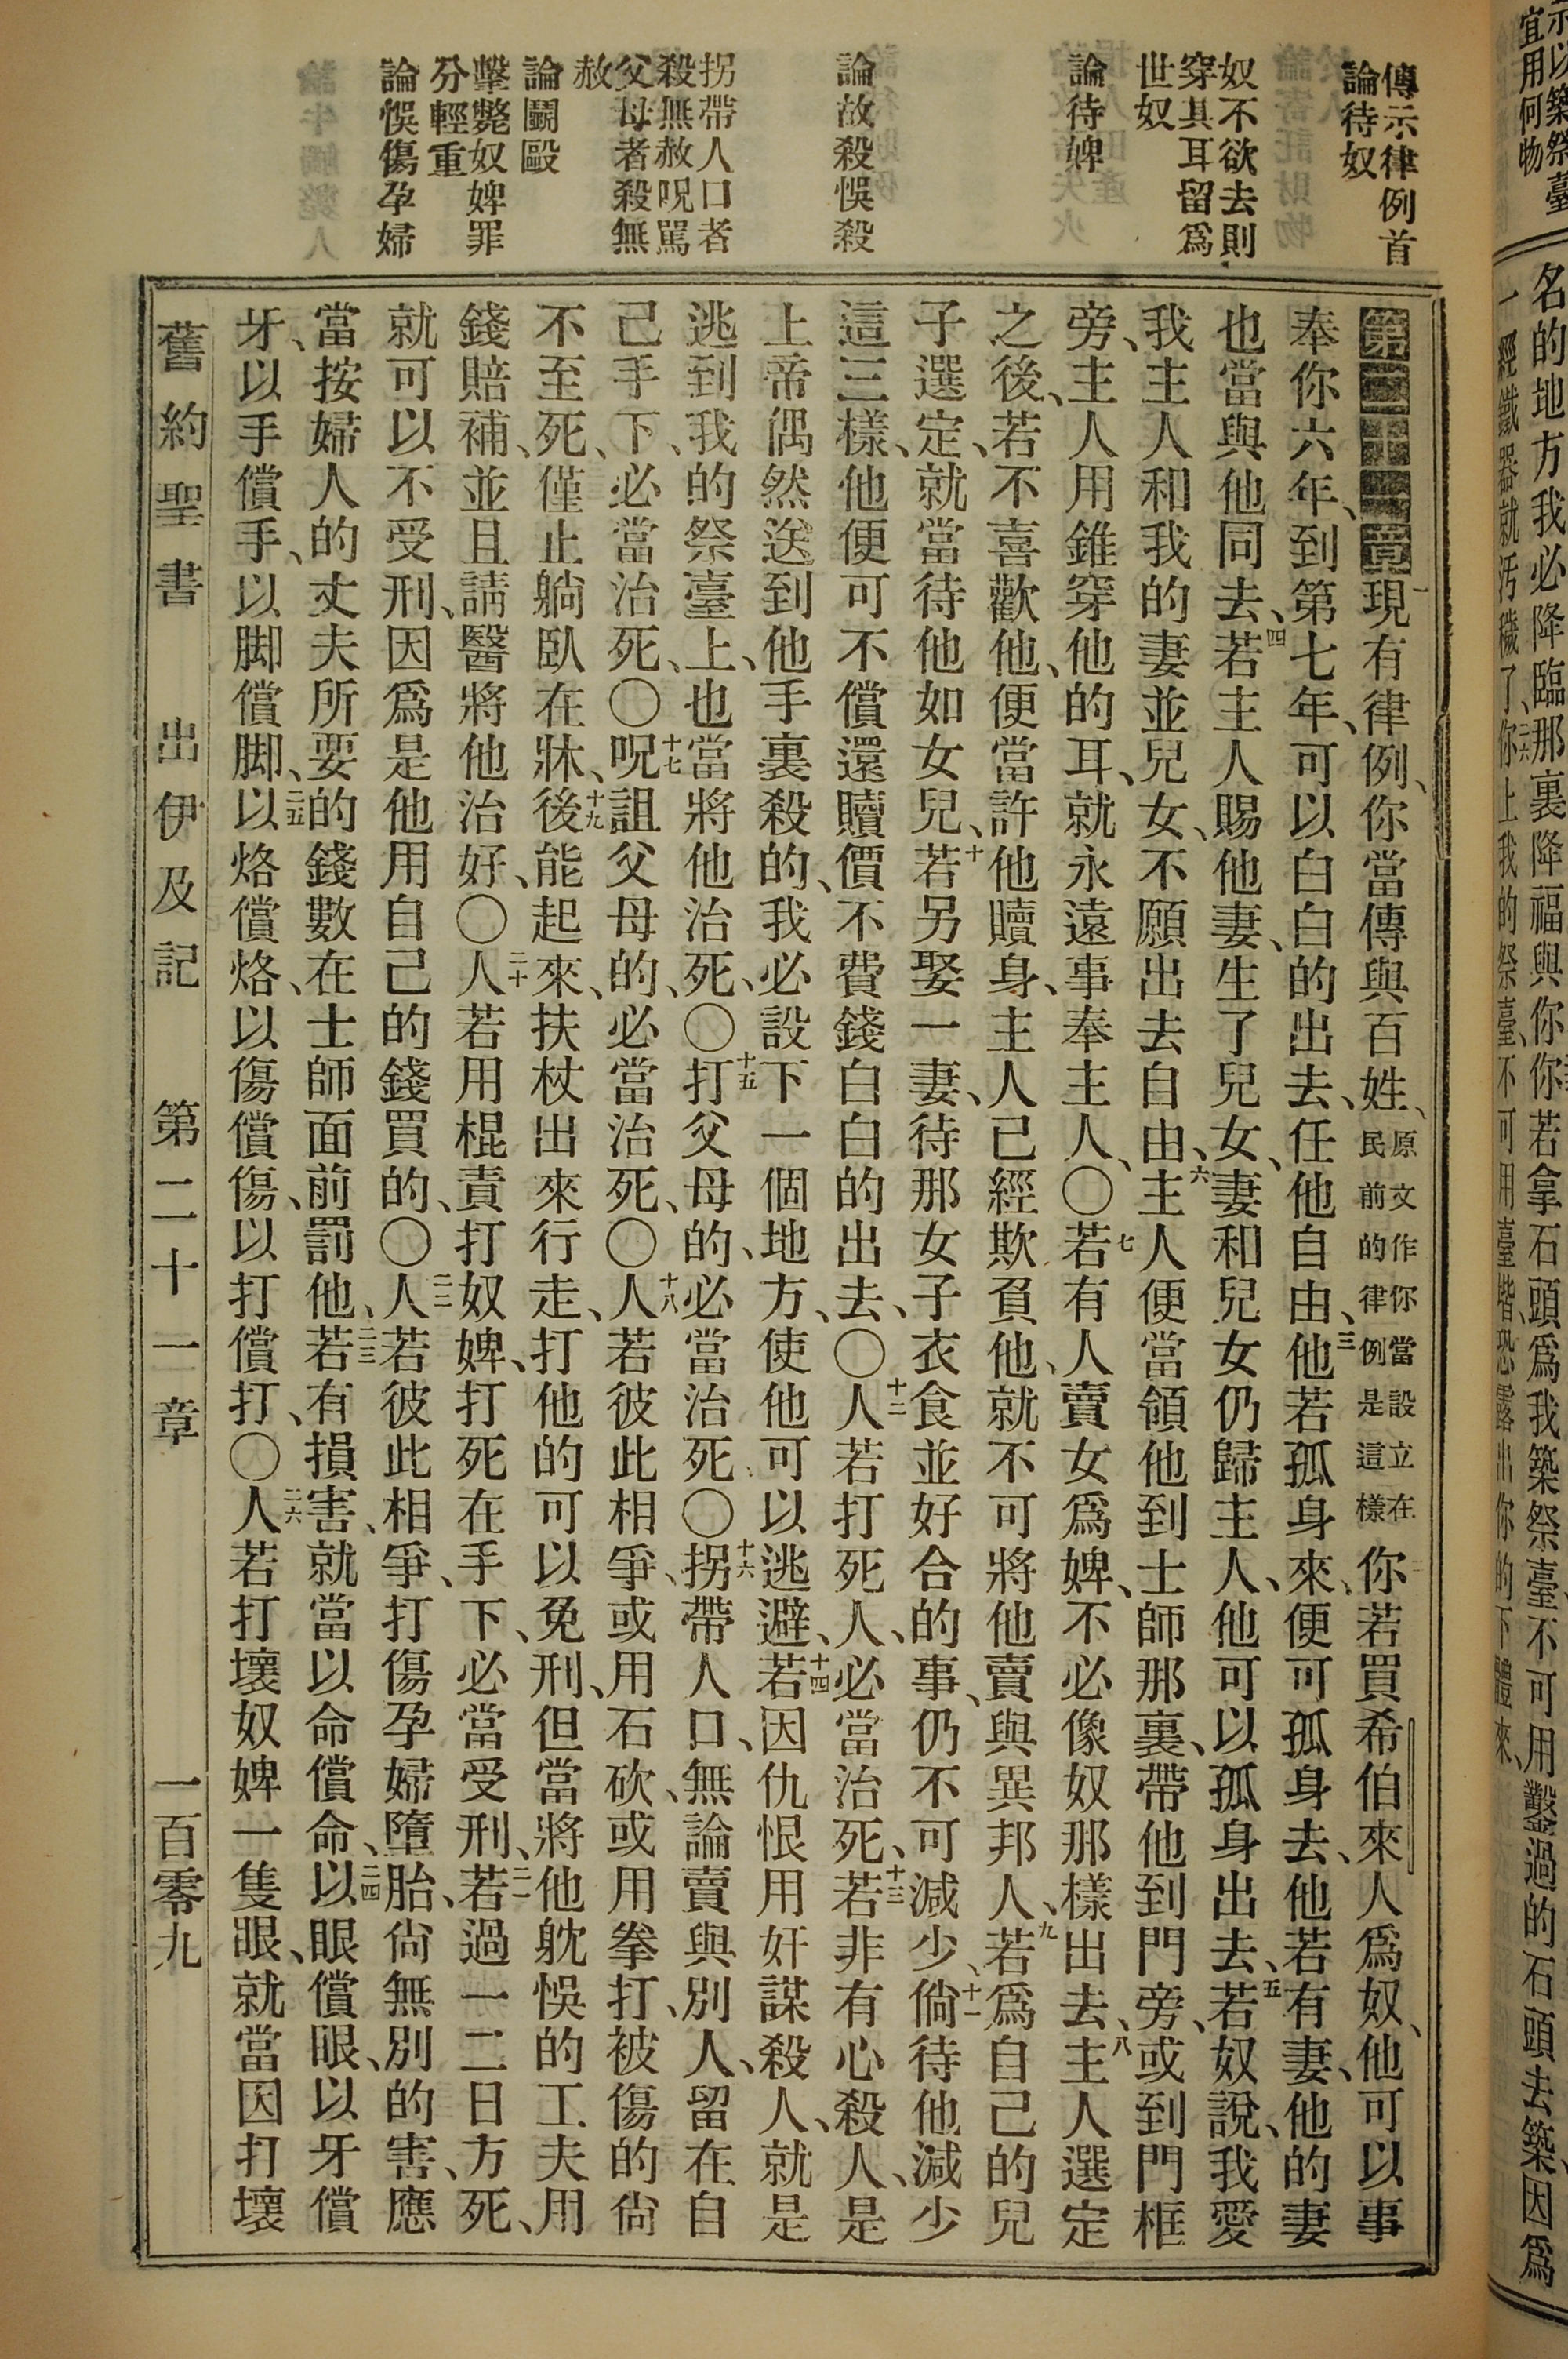 傳示律例首
論待奴
奴不欲去則
穿其耳留爲
世奴
論待婢
論故殺悞殺
拐帶人口者
殺無赦呪罵
父母者殺無
赦
論鬭毆
擊斃奴婢罪
分輕重
論悞傷孕婦
第二十一章一現有律例、你當傳與百姓、原文作你當設立在民前的律例是這樣二你若買希伯來人爲奴、他可以事
奉你六年、到第七年、可以白白的出去、任他自由、三他若孤身來、便可孤身去、他若有妻、他的妻
也當與他同去、四若主人賜他妻、生了兒女、妻和兒女仍歸主人、他可以孤身出去、五若奴說、我愛
我主人和我的妻並兒女、不願出去自由、六主人便當領他到士師那裏、帶他到門旁、或到門框
旁、主人用錐穿他的耳、就永遠事奉主人、〇七若有人賣女爲婢、不必像奴那樣出去、八主人選定
之後、若不喜歡他、便當許他贖身、主人已經欺負他、就不可將他賣與異邦人、九若爲自己的兒
子選定、就當待他如女兒、十若另娶一妻、待那女子衣食並好合的事、仍不可減少、十一倘待他減少
這三樣、他便可不償還贖價不費錢白白的出去、〇十二人若打死人、必當治死、十三若非有心殺人、是
上帝偶然送到他手裏殺的、我必設下一個地方、使他可以逃避、十四若因仇恨用奸謀殺人、就是
逃到我的祭臺上、也當將他治死、〇十五打父母的、必當治死、〇十六拐帶人口、無論賣與別人、留在自
己手下、必當治死、〇十七呪詛父母的、必當治死、〇十八人若彼此相爭、或用石砍、或用拳打、被傷的尙
不至死、僅止躺臥在牀、十九後能起來、扶杖出來行走、打他的可以免刑、但當將他躭悞的工夫用
錢賠補、並且請醫將他治好、〇二十人若用棍責打奴婢、打死在手下、必當受刑、二一若過一二日方死、
就可以不受刑、因爲是他用自己的錢買的、〇二二人若彼此相爭、打傷孕婦墮胎、尙無別的害、應
當按婦人的丈夫所要的錢數在士師面前罰他、二三若有損害、就當以命償命、二四以眼償眼、以牙償
牙、以手償手、以脚償脚、二五以烙償烙、以傷償傷、以打償打、〇二六人若打壞奴婢一隻眼、就當因打壞
舊約聖書 出伊及記 第二十一章 一百零九